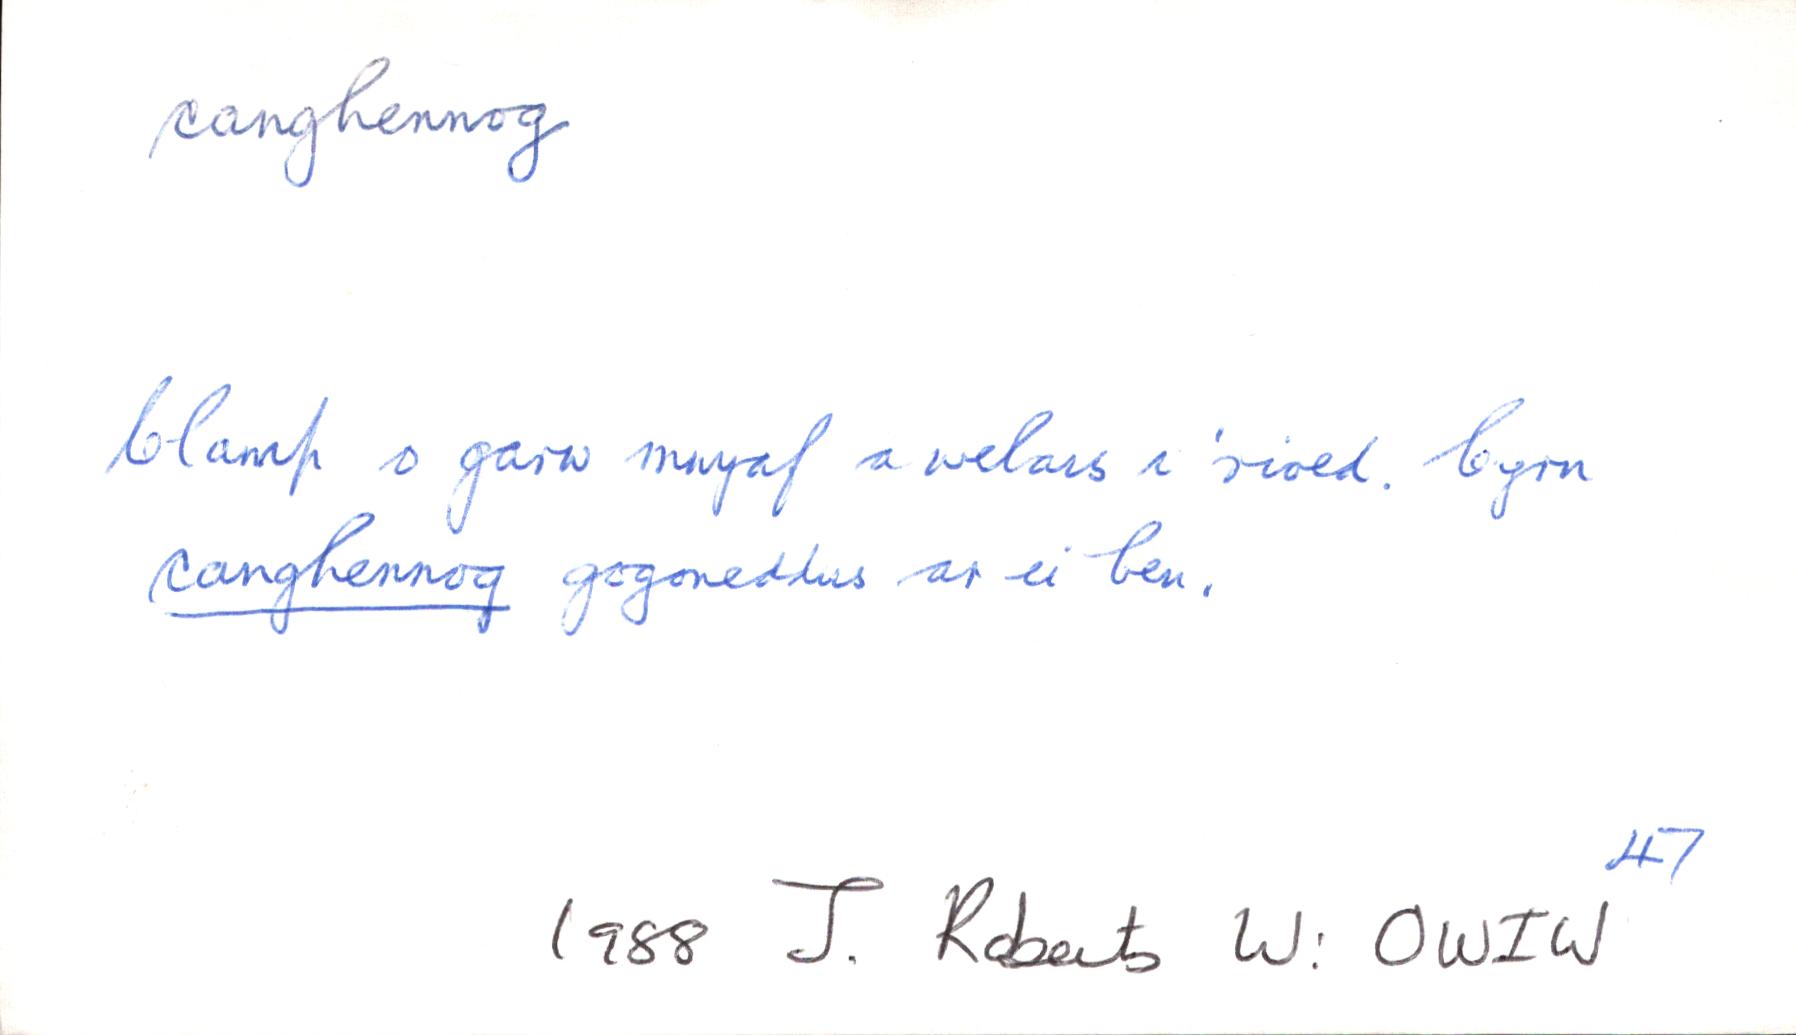 canghennog
Clamp o garw mwyaf a welais i 'rioed. Cyrn
canghennog gogoneddus ar ei ben.
47
1988 J. Roberts W: OWIW